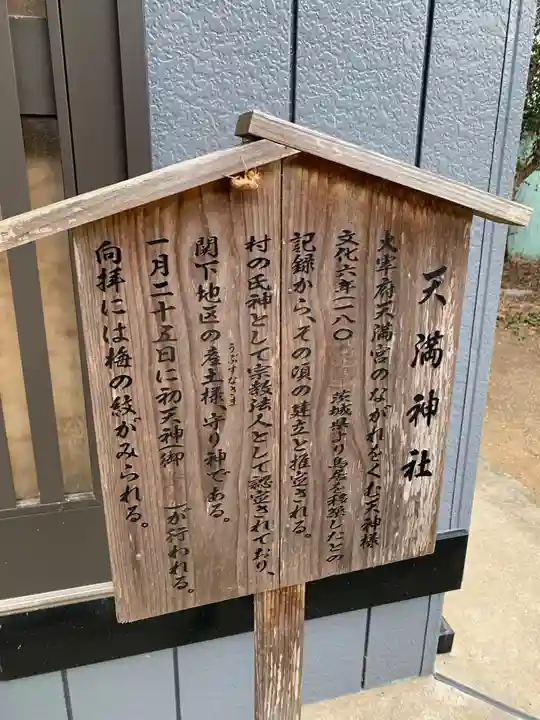 天満神社
大宰府天満宮のながれをくむ天神様
文化六年（一八〇 茨城県より鳥居を移築したとの
記録から、その頃の建立と推定される。
村の氏神として宗教法人として認定されており、
関下地区の産土様、守り神である。
うぶすなさま
一月二十五日に初天神御 が行われる。
向拝には梅の紋がみられる。